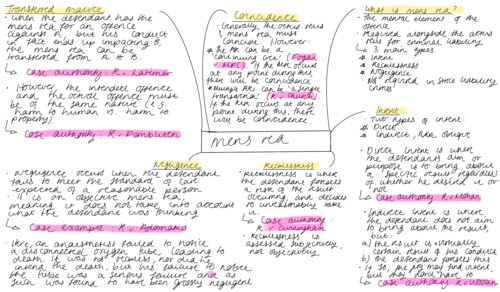 Transferred malice
- When the defendant has the
mens rea for an offence
against A, but his conduct
in fact ends up impacting B,
the mens rea can be
transferred from A to B.
↳ Case authority: R v. Latimer
- However, the intended offence
and the actual offence must
be of the same nature (e.g.
harm to human vs. harm to
property).
↳ Case authority: R v. Pembliton
Coincidence
- Generally, the actus reus
& mens rea must
coincide. However:
The AR can be a
'continuing act' (Fagan
v MPC). If the MR occurs
at any point during this,
there will be coincidence
Multiple ARs can be 'a single
transaction' (R v. Church).
If the MR occurs at any
point during this, there
will be coincidence.
What is mens rea?
- The mental element of the
offence
- Required alongside the actus
reus for criminal liability
- 3 main types
Intent
Recklessness
Negligence
- Not required in strict liability
crimes!
mens rea
Intent
- Two types of intent:
Direct
Indirect, AKA oblique
- Direct intent is where
the defendant's aim or
purpose is to bring about
a specific result regardless
of whether he desired it or
not
↳ Case authority: R v. Mohan
- Indirect intent is where
the defendant does not aim
to bring about the result,
but:
a) the result is virtually
certain result of his conduct
b) the defendant foresees this
- If so, the jury may find intent,
but they don't have to
↳ Case authority: R v. Woollin
Negligence
- Negligence occurs when the defendant
fails to meet the standard of care
expected of a reasonable person
- It is an objective mens rea,
meaning it does not take into account
what the defendant was thinking
↳ Case example: R v. Adomako
- Here, an anaesthetist failed to notice
a disconnected oxygen tube, leading to
death. It was not reckless, nor did he
intend the death, but his failure to notice
the tube was a serious failure and as
such was found to have been grossly negligent
Recklessness
- Recklessness is when
the defendant foresees
a risk of the result
occurring, and decides
to unreasonably take
it.
↳ Case authority:
R v. Cunningham
- Recklessness is
assessed subjectively,
not objectively.